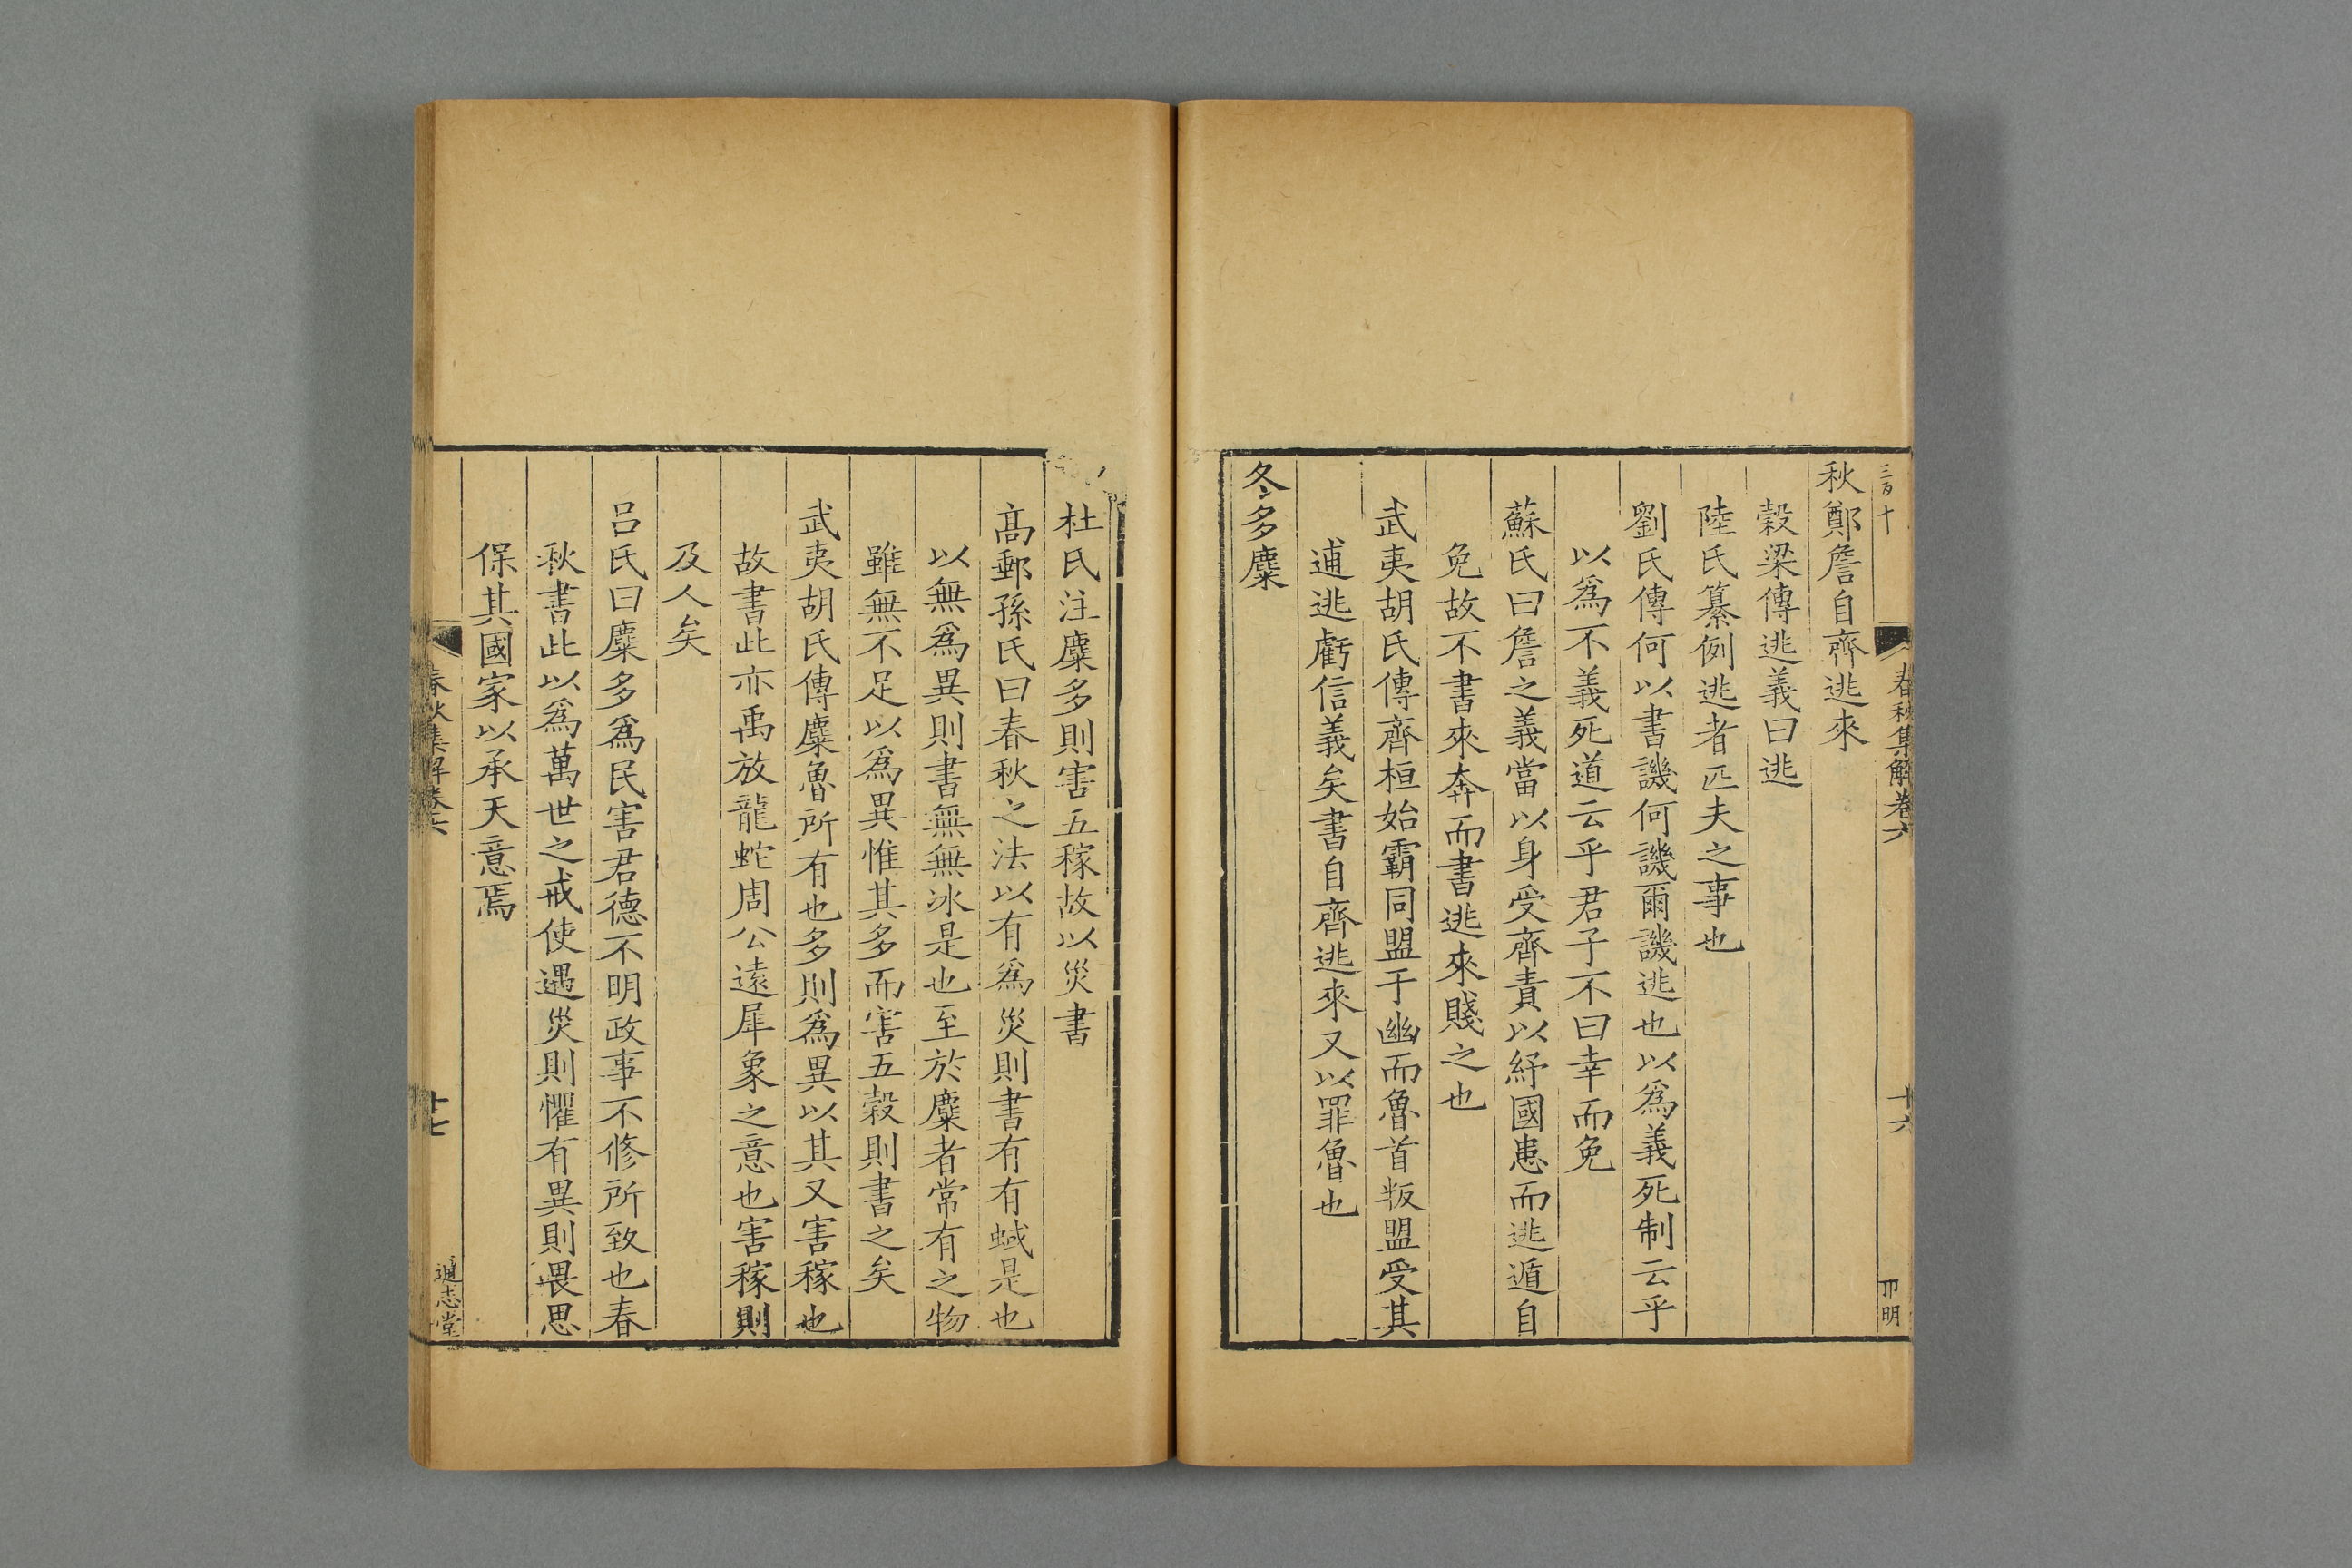 三百十
春秋集解卷六
十六
秋鄭詹自齊逃來
穀梁傳逃義曰逃
陸氏纂例逃者匹夫之事也
劉氏傳何以書譏何譏爾譏逃也以爲義死制云乎
以爲不義死道云乎君子不曰幸而免
蘇氏曰詹之義當以身受齊責以紓國患而逃遁自
免故不書來奔而書逃來賤之也
武夷胡氏傳齊桓始霸同盟于幽而魯首叛盟受其
逋逃虧信義矣書自齊逃來又以罪魯也
冬多麋
杜氏注麋多則害五稼故以災書
高郵孫氏曰春秋之法以有爲災則書有有蜮是也
以無爲異則書無無冰是也至於麋者常有之物
雖無不足以爲異惟其多而害五穀則書之矣
武夷胡氏傳麋魯所有也多則爲異以其又害稼也
故書此亦禹放龍蛇周公遠犀象之意也害稼則
及人矣
呂氏曰麋多爲民害君德不明政事不修所致也春
秋書此以爲萬世之戒使遇災則懼有異則畏思
保其國家以承天意焉
春秋集解卷六
十七
通志堂